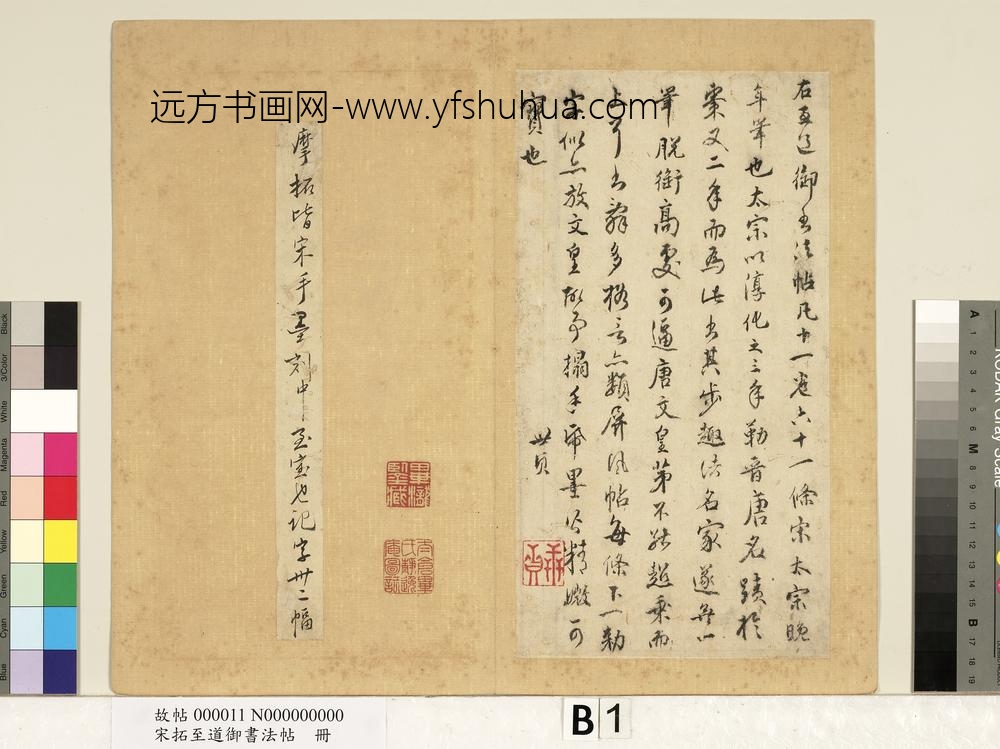 远方书画网-www.yfshuhua.com
右至道御书法帖凡十一卷六十一條宋太宗晚
年筆也太宗以淳化之三年勒晋唐名蹟於
棗又二年而為此书其步趣諸名家遂無一
筆脱銜高處可逼唐文皇第不能超乘而
上耳书辭多格言亦類屏风帖每條下一勅
字似亦放文皇故事搨手帋墨俱精緻可
寶也
世貞
摩拓皆宋手墨刻中之至宝也记字卅二幅
Black
3/Color
White
Magenta
Red
Yellow
Green
Cyan
Blue
A 1 2 3 4 5 6 M 8 9 10 11 12 13 14 15 B 17 18 19
KODAK Gray Scale
故帖 000011 N000000000
宋拓至道御書法帖 册
B 1